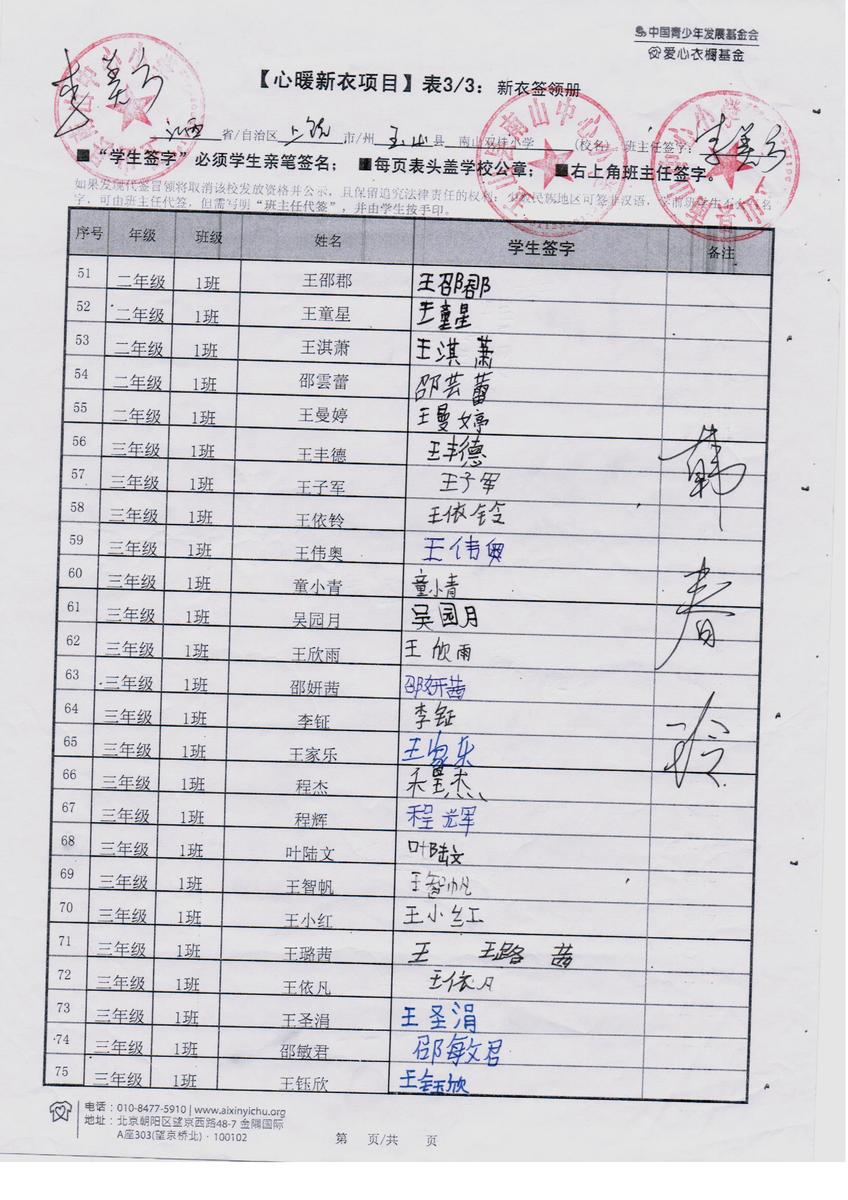 中国青少年发展基金会
爱心衣橱基金
【心暖新衣项目】表3/3：新衣签领册
江西 省/自治区 上饶 市/州 玉山 县 南山双佳小学 (校名) 班主任签字：
■ “学生签字”必须学生亲笔签名； ■每页表头盖学校公章； ■右上角班主任签字。
如果发现代签冒领将取消该校发放资格并公示，且保留追究法律责任的权利；少数民族地区可签非汉语，学前班学生不会签名
字，可由班主任代签，但需写明“班主任代签”，并由学生按手印。
序号 年级 班级 姓名 学生签字 备注
51 二年级 1班 王邵郡 王邵郡
52 二年级 1班 王童星 王童星
53 二年级 1班 王淇萧 王淇 萧
54 二年级 1班 邵雲蕾 邵芸蕾
55 二年级 1班 王曼婷 王曼婷
56 三年级 1班 王丰德 王丰德
57 三年级 1班 王子军 王子军
58 三年级 1班 王依铃 王依铃
59 三年级 1班 王伟奥 王伟奥
60 三年级 1班 童小青 童小青
61 三年级 1班 吴园月 吴园月
62 三年级 1班 王欣雨 王欣雨
63 三年级 1班 邵妍茜 邵妍茜
64 三年级 1班 李钲 李钲
65 三年级 1班 王家乐 王家乐
66 三年级 1班 程杰 程杰
67 三年级 1班 程辉 程辉
68 三年级 1班 叶陆文 叶陆文
69 三年级 1班 王智帆 王智帆
70 三年级 1班 王小红 王小红
71 三年级 1班 王璐茜 王 王璐 茜
72 三年级 1班 王依凡 王依凡
73 三年级 1班 王圣涓 王圣涓
74 三年级 1班 邵敏君 邵敏君
75 三年级 1班 王钰欣 王钰欣
韩
春
玲
电话：010-8477-5910 | www.aixinyichu.org
地址：北京朝阳区望京西路48-7 金隅国际
A座303(望京桥北)·100102
第 页/共 页